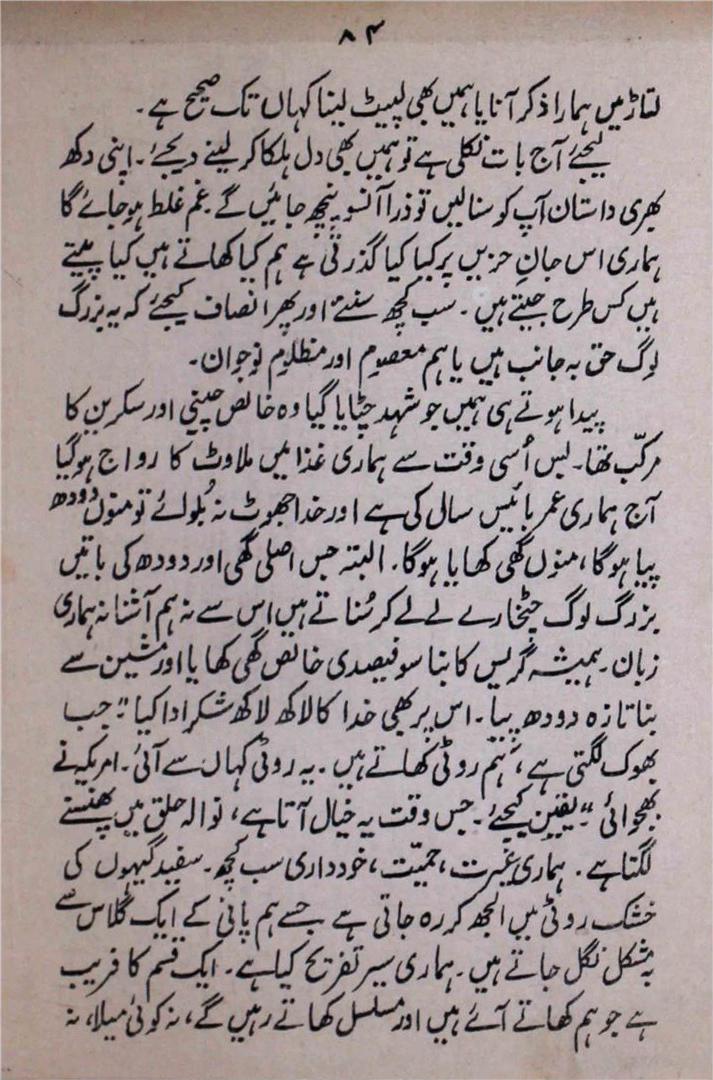 ۸۴
لتاڑ میں ہمارا ذکر آنا یا ہمیں بھی لپیٹ لینا کہاں تک صحیح ہے۔
لیجئے آج بات نکلی ہے تو ہمیں بھی دل ہلکا کر لینے دیجئے۔ اپنی دکھ
بھری داستان آپ کو سنا لیں تو ذرا آنسو پنچھ جائیں گے۔ غم غلط ہو جائے گا
ہماری اس جانِ حزیں پر کیا کیا گذرتی ہے ہم کیا کھاتے ہیں کیا پیتے
ہیں کس طرح جیتے ہیں۔ سب کچھ سنئے اور پھر انصاف کیجئے کہ یہ بزرگ
لوگ حق بہ جانب ہیں یا ہم معصوم اور مظلوم نوجوان۔
پیدا ہوتے ہی ہمیں جو شہد چٹایا گیا وہ خالص چینی اور سکرین کا
مرکّب تھا۔ بس اُسی وقت سے ہماری غذا میں ملاوٹ کا رواج ہو گیا
آج ہماری عمر بائیس سال کی ہے اور خدا جھوٹ نہ بُلوائے تو منوں دودھ
پیا ہوگا، منوں گھی کھایا ہوگا۔ البتہ جس اصلی گھی اور دودھ کی باتیں
بزرگ لوگ چٹخارے لے لے کر سُناتے ہیں اس سے نہ ہم آشنا نہ ہماری
زبان۔ ہمیشہ گریس کا بنا سو فیصدی خالص گھی کھایا اور مشین سے
بنا تازہ دودھ پیا۔ اس پر بھی خدا کا لاکھ لاکھ شکر ادا کیا "جب
بھوک لگتی ہے، ہم روٹی کھاتے ہیں۔ یہ روٹی کہاں سے آئی۔ امریکہ نے
بھجوائی" یقین کیجئے۔ جس وقت یہ خیال آتا ہے، نوالہ حلق میں پھنسنے
لگتا ہے۔ ہماری غیرت، حمیّت، خودداری سب کچھ۔ سفید گیہوں کی
خشک روٹی میں الجھ کر رہ جاتی ہے جسے ہم پانی کے ایک گلاس سے
بہ شکل نگل جاتے ہیں۔ ہماری سیر تفریح کیا ہے۔ ایک قسم کا فریب
ہے جو ہم کھاتے آئے ہیں اور مسلسل کھاتے رہیں گے، نہ کوئی میلا، نہ